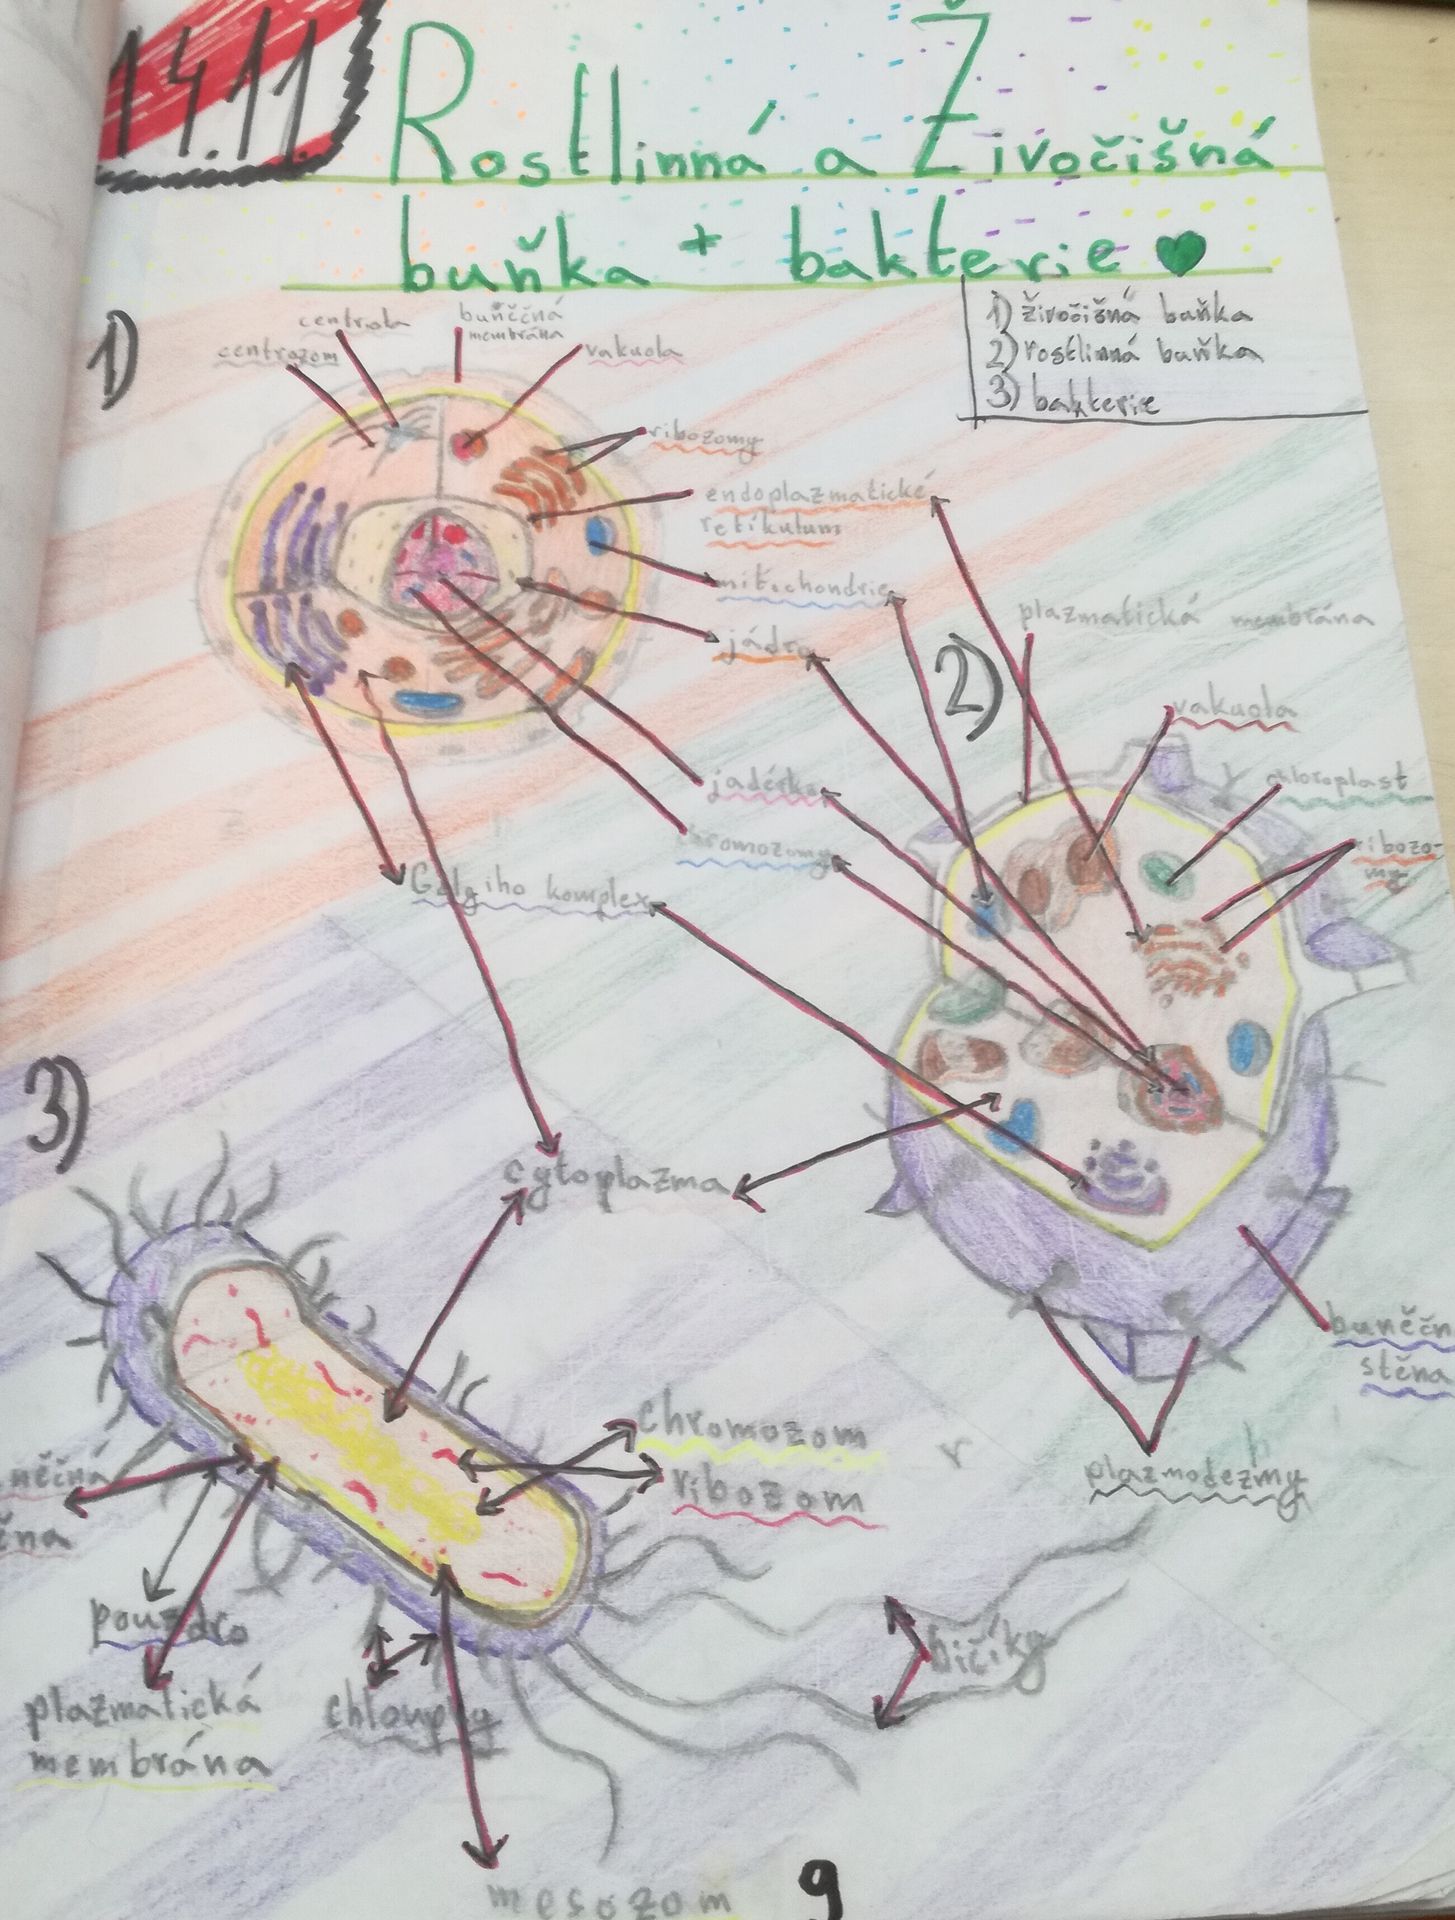 14.11
Rostlinná a Živočišná
buňka + bakterie
1) živočišná buňka
2) rostlinná buňka
3) bakterie
1)
centriola
centrozom
membrána
vakuola
ribozomy
endoplazmatické
retikulum
mitochondrie
jádro
plazmatická membrána
2)
vakuola
chloroplast
ribozo-
my
jadérko
chromozomy
Golgiho komplex
3)
cytoplazma
buněčn
stěna
plazmodezmy
chromozom
ribozom
něčná
pouzdro
plazmatická
membrána
chloupky
bičíky
mesozom
9